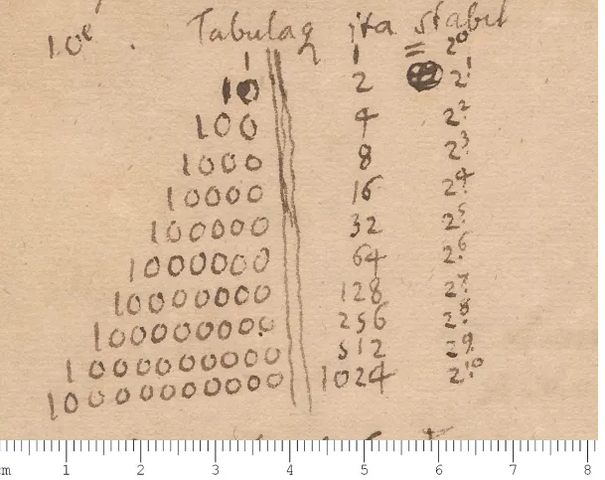 10e. Tabulaq ita stabit
1 1 = 2^0
10 2 2^1
100 4 2^2
1000 8 2^3
10000 16 2^4
100000 32 2^5
1000000 64 2^6
10000000 128 2^7
100000000 256 2^8
1000000000 512 2^9
10000000000 1024 2^10
cm 1 2 3 4 5 6 7 8